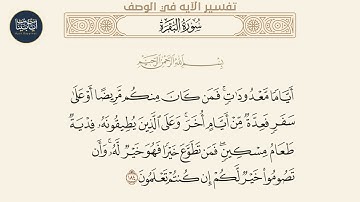 تفسير الآيه في الوصف
سُورَةُ البَقَرَةِ
بِسْمِ اللَّهِ الرَّحْمَٰنِ الرَّحِيمِ
أَيَّامًا مَّعْدُودَاتٍ ۚ فَمَن كَانَ مِنكُم مَّرِيضًا أَوْ عَلَىٰ
سَفَرٍ فَعِدَّةٌ مِّنْ أَيَّامٍ أُخَرَ ۚ وَعَلَى الَّذِينَ يُطِيقُونَهُ فِدْيَةٌ
طَعَامُ مِسْكِينٍ ۖ فَمَن تَطَوَّعَ خَيْرًا فَهُوَ خَيْرٌ لَّهُ ۚ وَأَن
تَصُومُوا خَيْرٌ لَّكُمْ ۖ إِن كُنتُمْ تَعْلَمُونَ ١٨٤